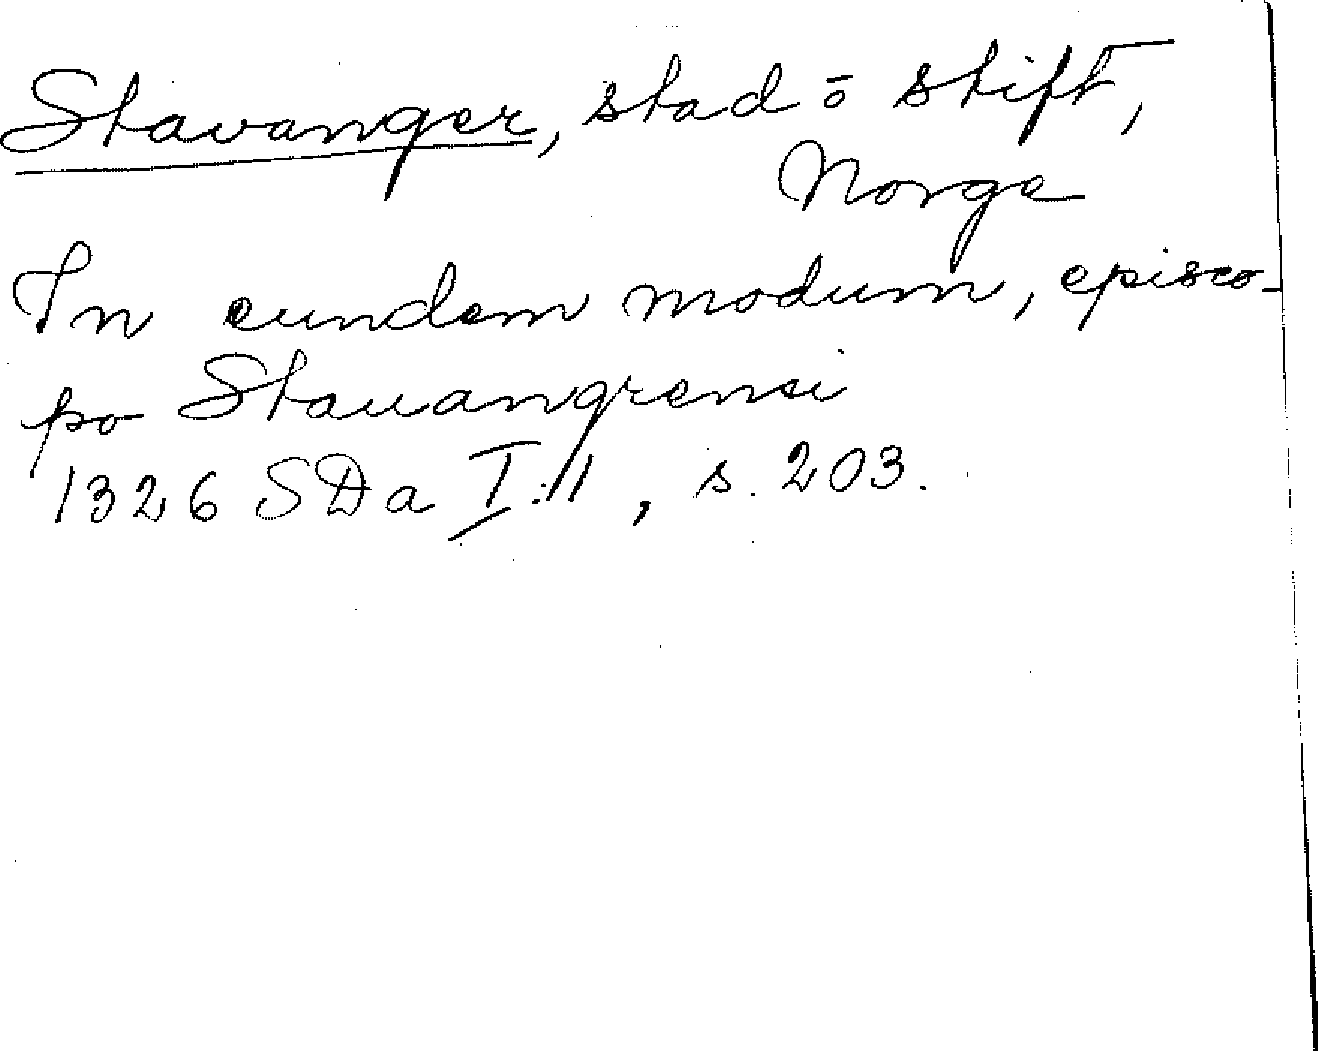 Stavanger, stad ō stift,
Norge
In eundem modum, episco-
po Stauangrensi
1326 SDa I:11, s. 203.